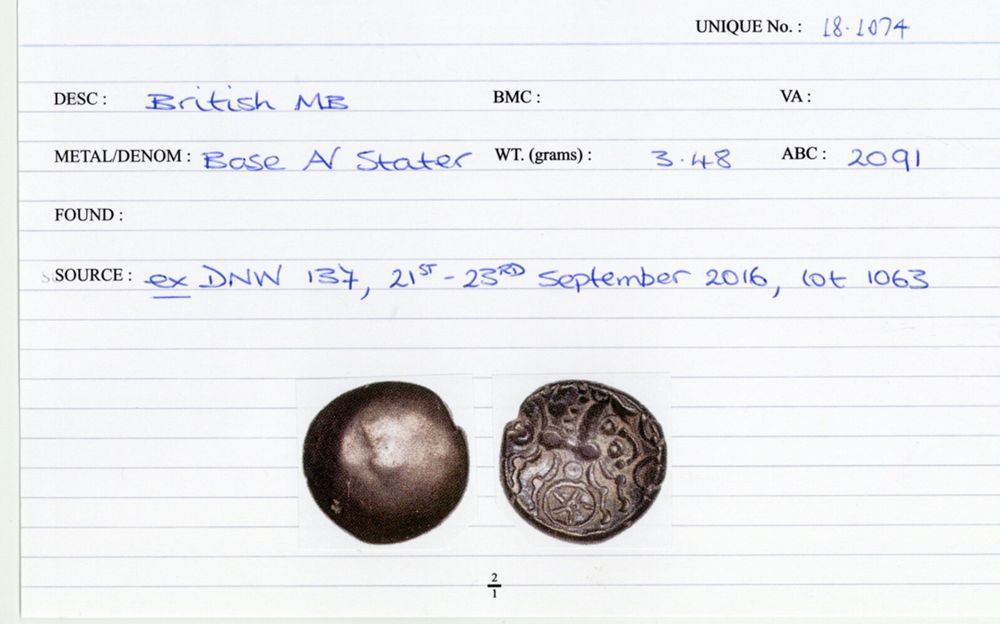 UNIQUE No. : 18·1074
DESC : British MB BMC : VA :
METAL/DENOM : Base AV Stater WT. (grams) : 3·48 ABC : 2091
FOUND :
SOURCE : ex DNW 137, 21ST - 23RD September 2016, lot 1063
2
1